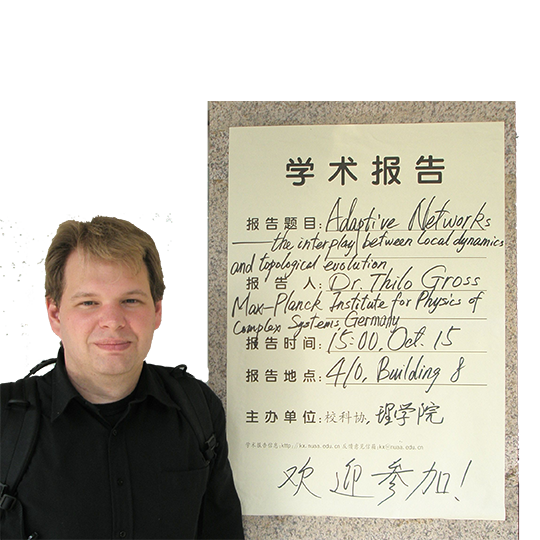 学术报告
报告题目: Adaptive Networks
——the interplay between Local dynamics
and topological evolution
报告人: Dr. Thilo Gross
Max-Planck Institute for Physics of
Complex Systems, Germany
报告时间: 15:00, Oct. 15
报告地点: 410, Building 8
主办单位: 校科协, 理学院
学术报告信息:http://kx.nuaa.edu.cn 反馈意见信箱:kx@nuaa.edu.cn
欢迎参加!